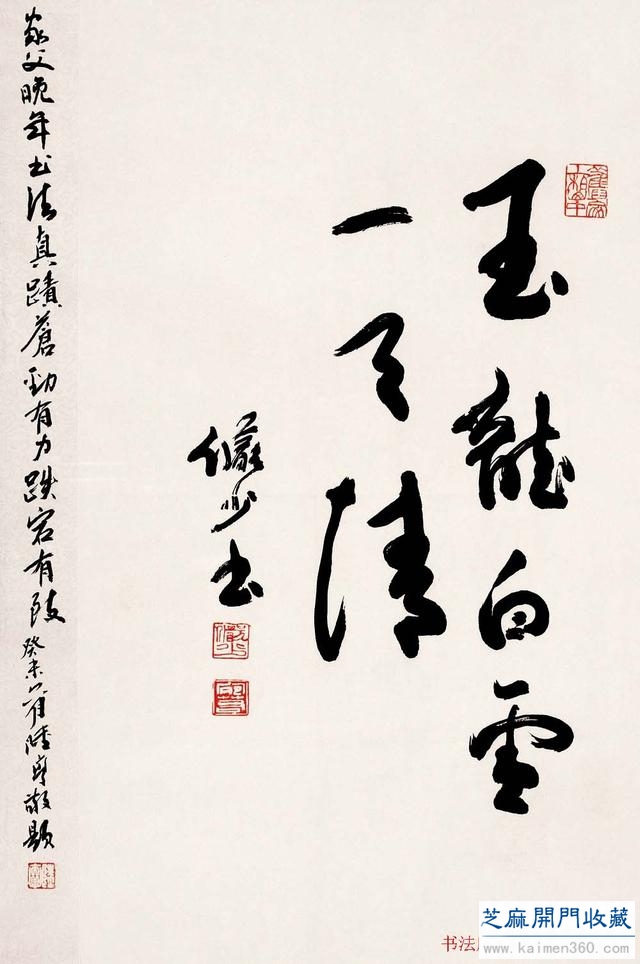 玉龍白雲
一天清
儼少書
家父晚年書法真蹟蒼勁有力跌宕有致 癸未 陸亨敬題
书法
芝麻開門收藏
www.kaimen360.com